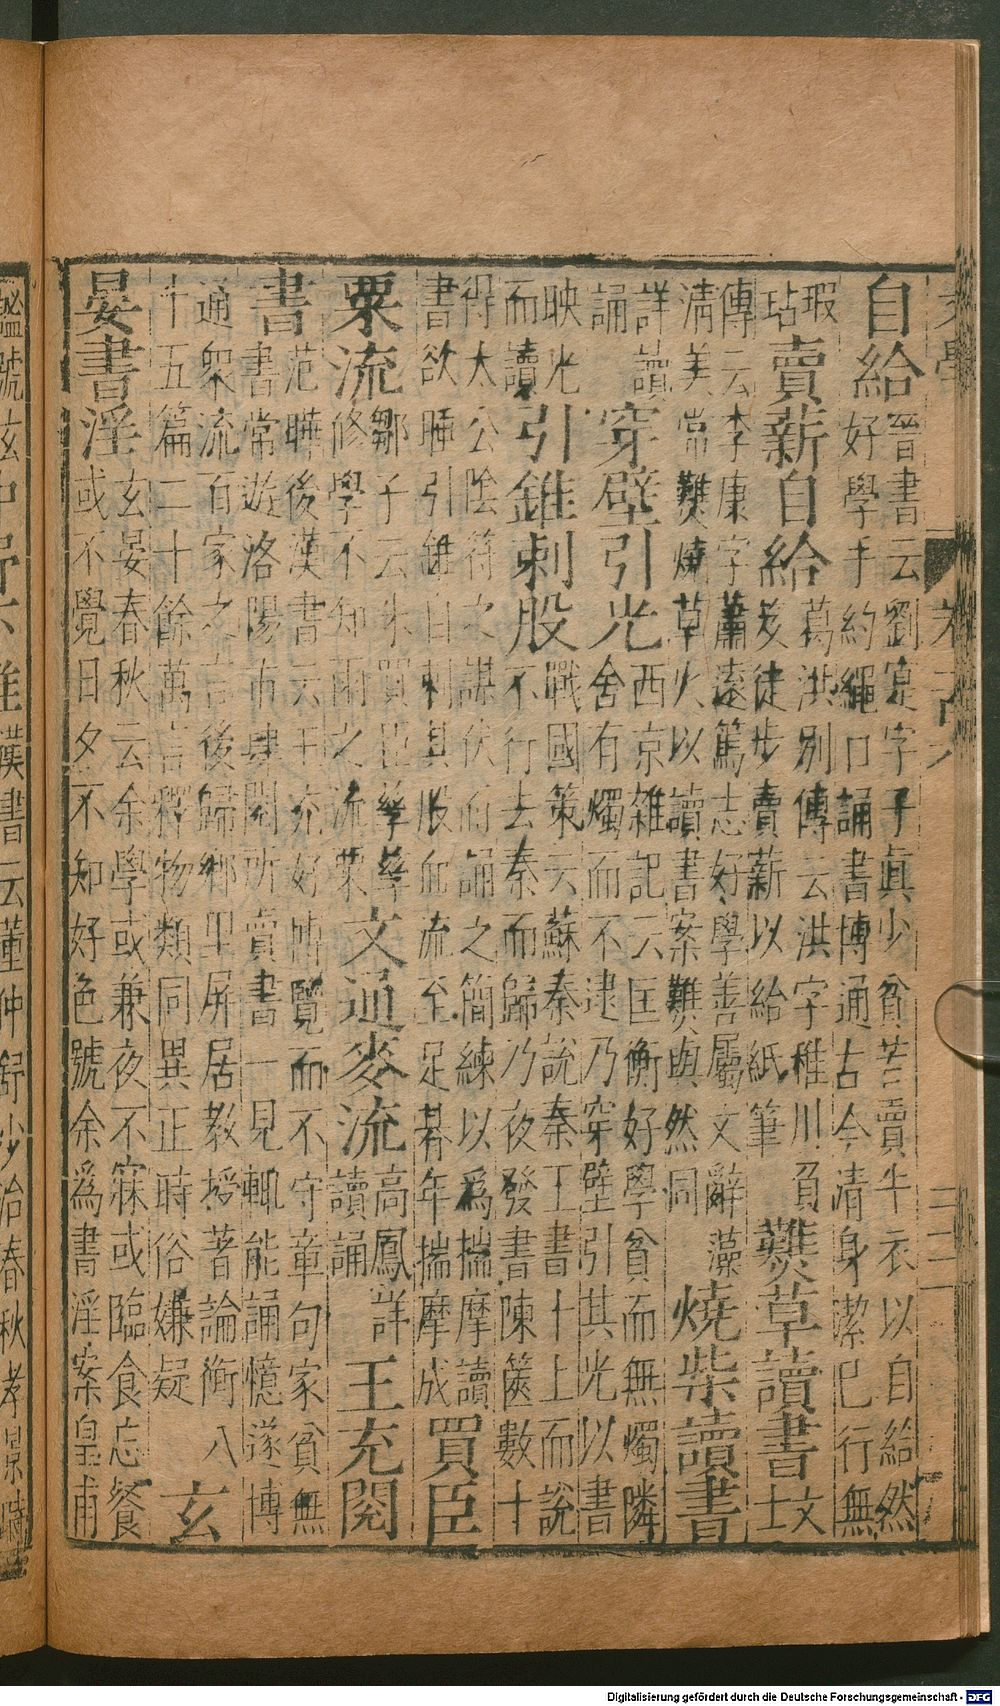 自給
晉書云劉寔字子眞少貧苦賣牛衣以自給然
好學手約繩口誦書博通古今清身潔己行無
瑕
玷
賣薪自給
葛洪別傳云洪字稚川負
笈徒步賣薪以給紙筆
爇草讀書
文
士
傳云李康字蕭遠篤志好學善屬文辭藻
清美常爇燒草火以讀書案爇與然同
燒柴讀書
詳讀
誦
穿壁引光
西京雜記云匡衡好學貧而無燭隣
舍有燭而不逮乃穿壁引其光以書
映光
而讀
引錐刺股
戰國策云蘇秦說秦王書十上而說
不行去秦而歸乃夜發書陳篋數十
得太公陰符之謀伏而誦之簡練以爲揣摩讀
書欲睡引錐自刺其股血流至足朞年揣摩成
買臣
粟流
鄒子云朱買臣孳孳
修學不知雨之流粟
文通麥流
高鳳詳
讀誦
王充閱
書
范曄後漢書云王充好博覽而不守章句家貧無
書常遊洛陽市肆閱所賣書一見輒能誦憶遂博
通衆流百家之言後歸鄉里屏居教授著論衡八
十五篇二十餘萬言釋物類同異正時俗嫌疑
玄
晏書淫
玄晏春秋云余學或兼夜不寐或臨食忘餐
或不覺日夕不知好色號余爲書淫案皇甫
謐號玄
漢書云董仲舒少治春秋孝景時
Digitalisierung gefördert durch die Deutsche Forschungsgemeinschaft - DFG